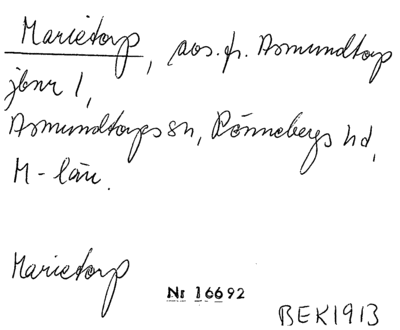 Marietorp, avs. fr. Asmundtorp
jbnr 1,
Asmundtorps sn, Rönnebergs hd,
M-län.
Marietorp
Nr 16692
BEK1913